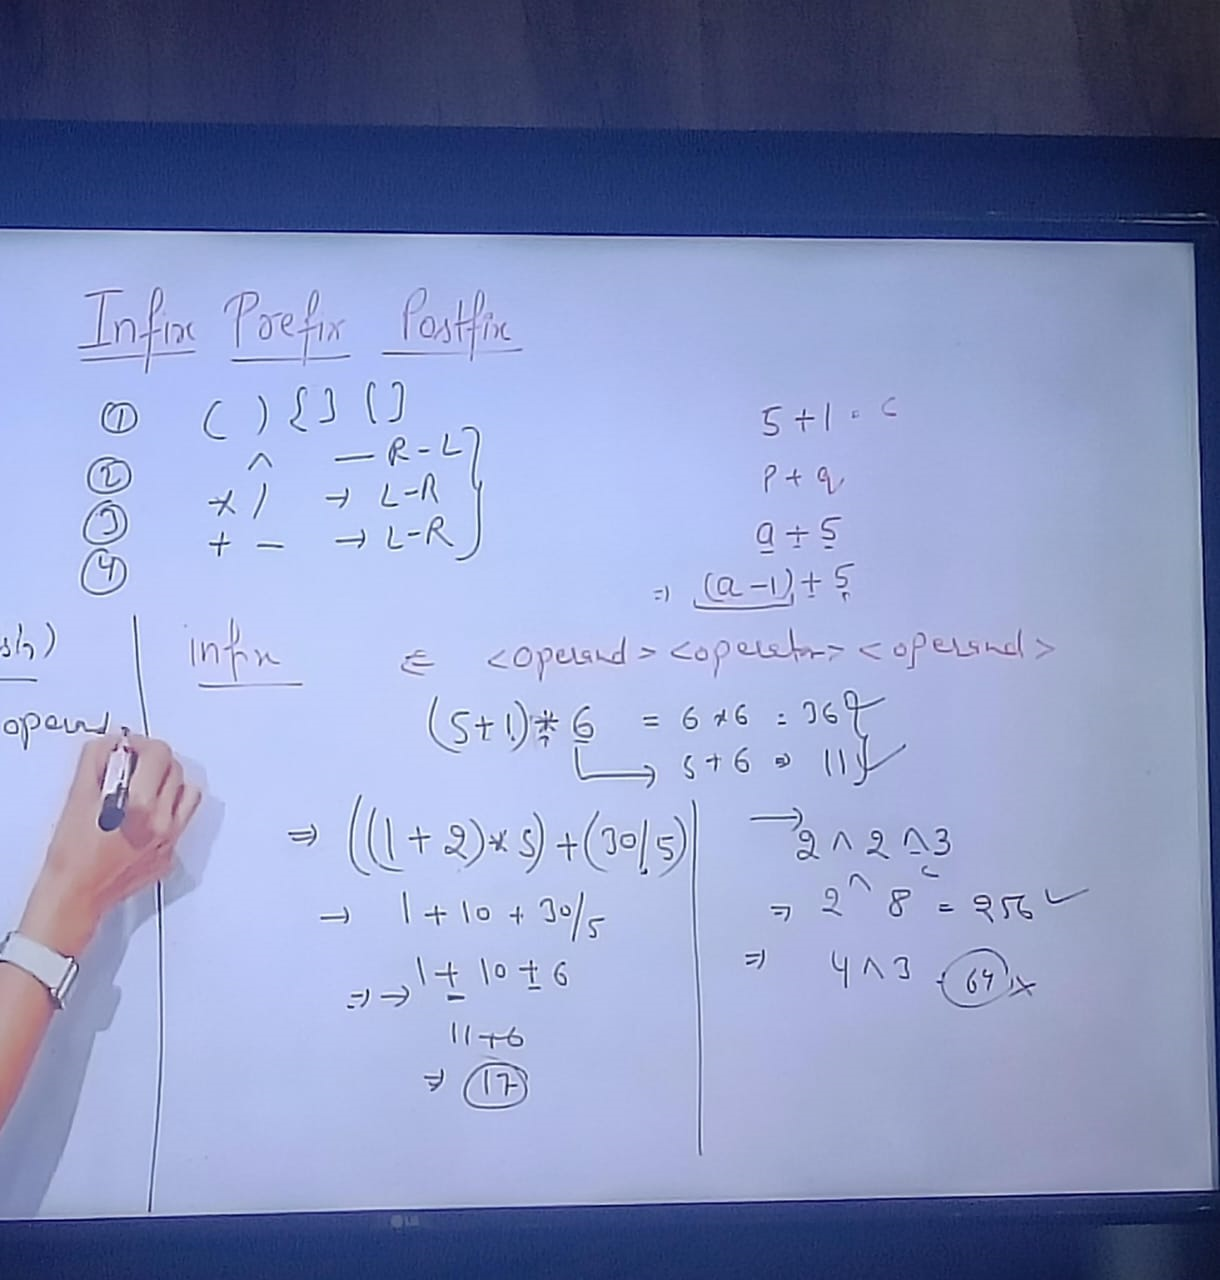 Infix Prefix Postfix
① ( ) { } [ ]
② ^ — R-L
③ * / → L-R
④ + - → L-R
5+1 = c
P+q
a+5
⇒ (a-1)+5
infix
<operand> <operator> <operand>
(5+1)*6 = 6*6 = 36
5+6 ⇒ 11
⇒ ((1+2)*5)+(30/5)
→ 1+10+30/5
⇒→ 1+10+6
11+6
⇒ 17
→ 2^2^3
⇒ 2^8 = 256 ✓
⇒ 4^3 = 64 ×